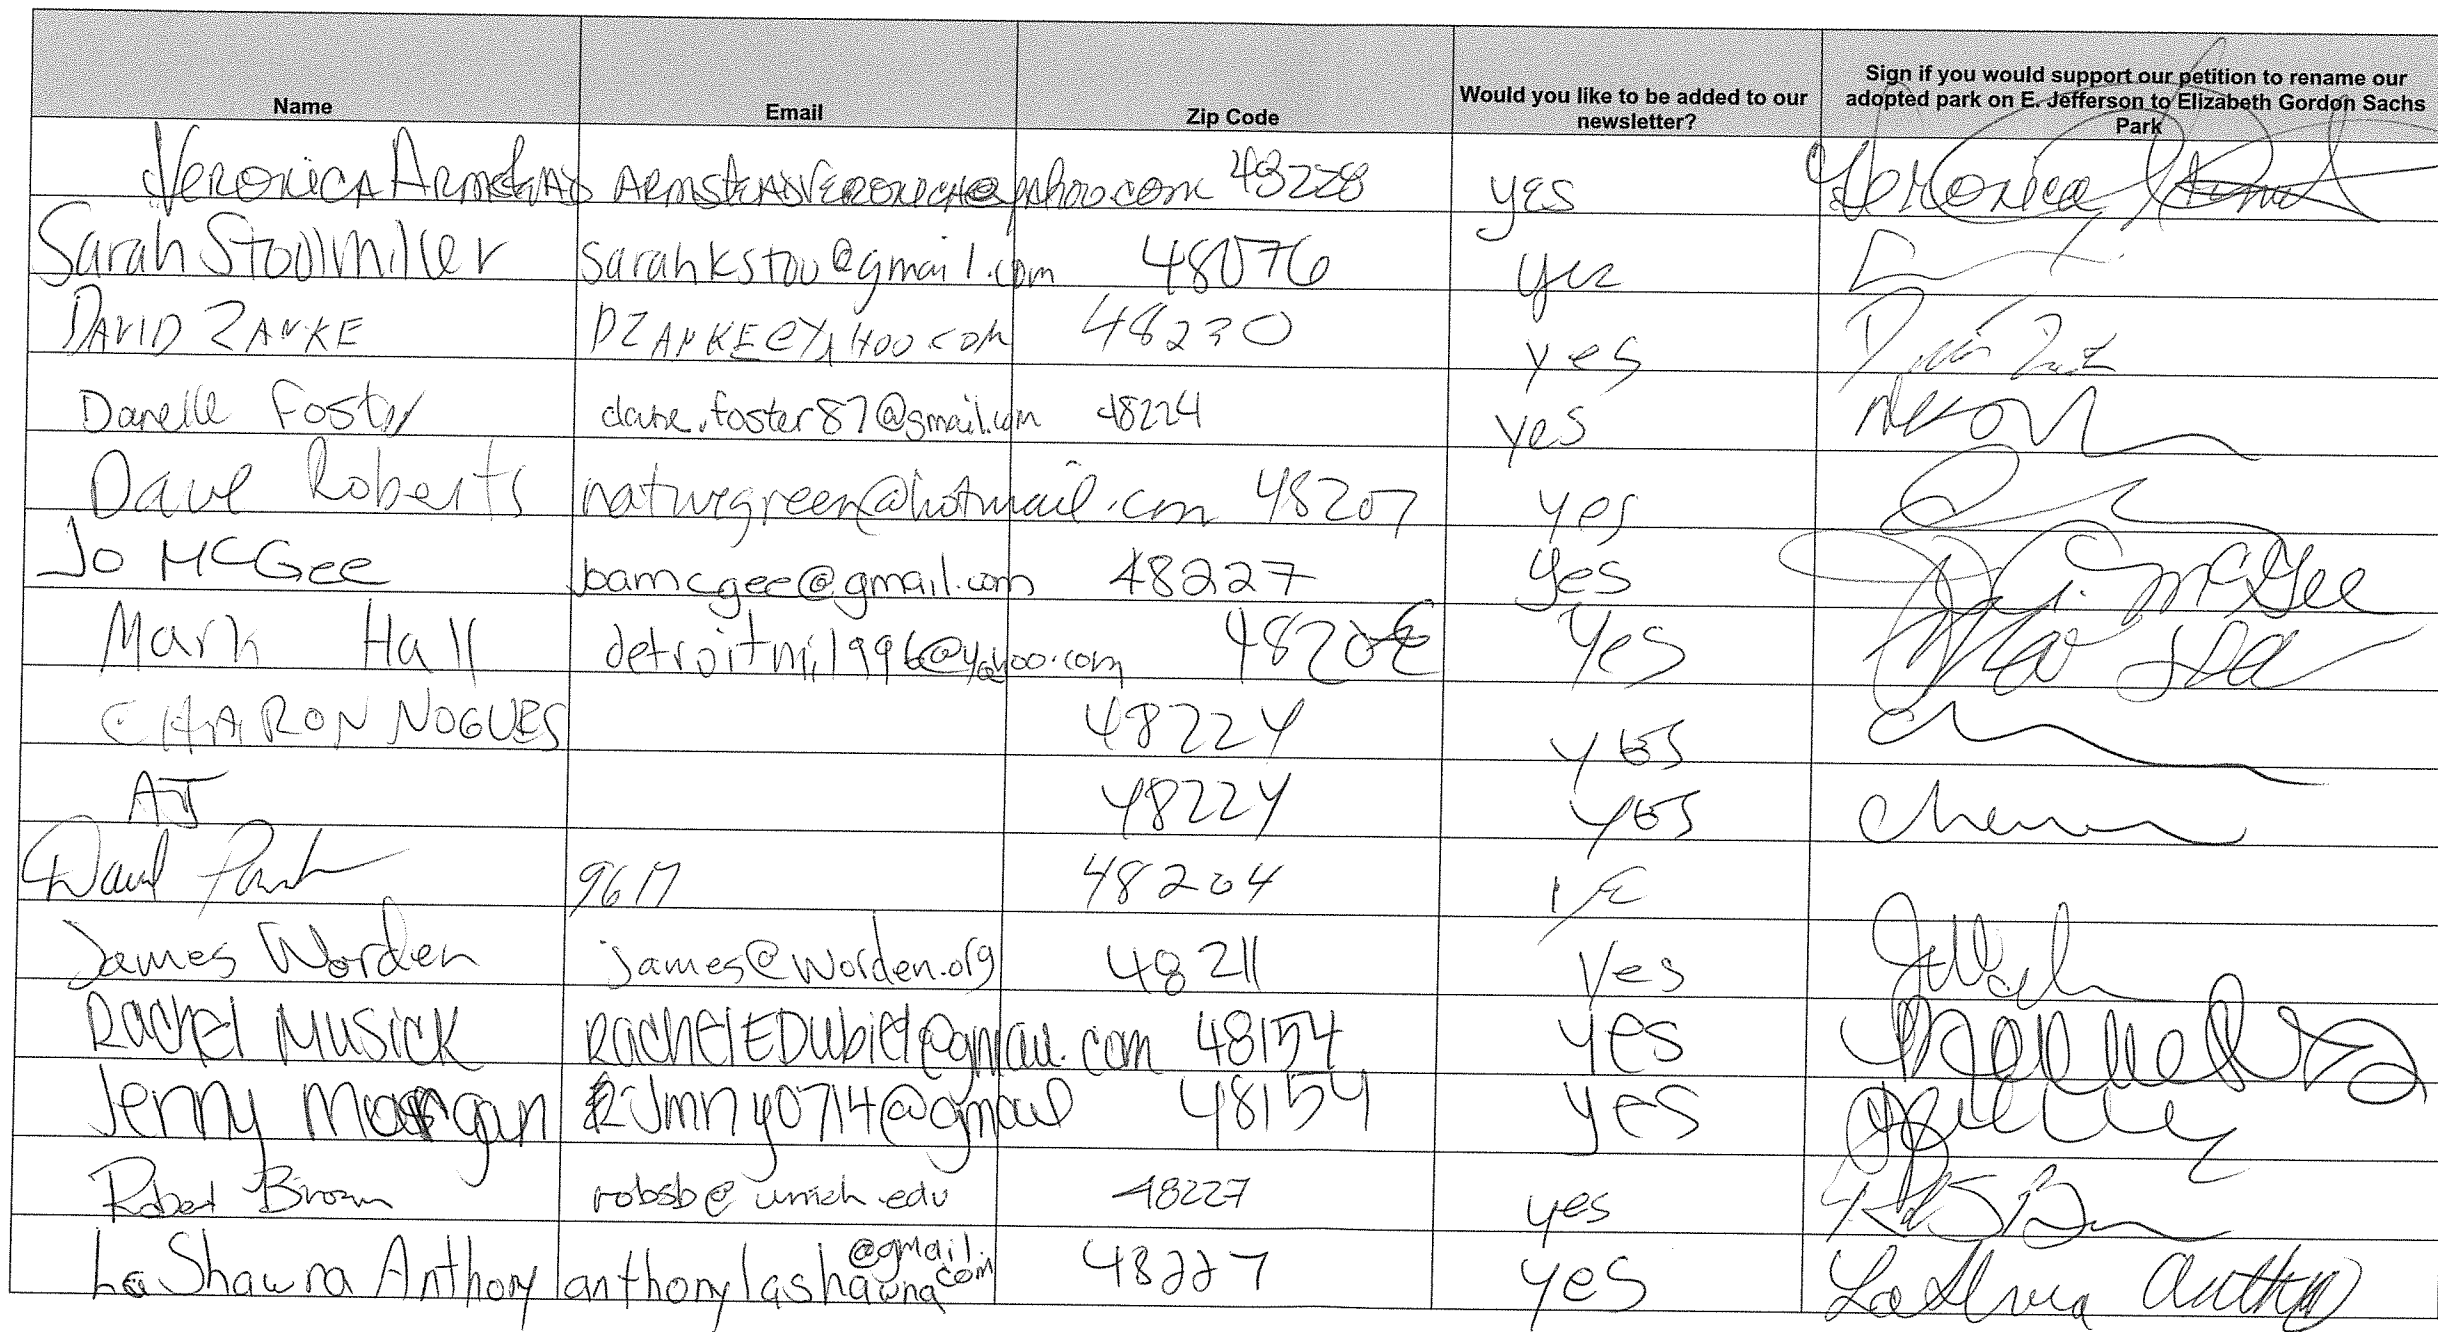 Name Email Zip Code Would you like to be added to our newsletter? Sign if you would support our petition to rename our adopted park on E. Jefferson to Elizabeth Gordon Sachs Park
Veronica 48228 yes Veronica
Sarah Stollmiller @gmail.com 48076 yes
DAVID ZANKE DZANKE@YAHOO.COM 48230 yes
Danelle Foster dane.foster87@gmail.com 48224 yes
Dave Roberts naturegreen@hotmail.com 48207 yes
Jo McGee joamcgee@gmail.com 48227 yes McGee
Mark Hall detroitmi1996@yahoo.com yes
CHARON NOGUES 48224 YES
AJ 48224 YES
David 48204
James Worden james@worden.org 48211 Yes
RACHEL MUSICK 48154 yes
Jenny Morgan 48154 yes
Robert Brown robsb@umich.edu 48227 yes
LaShawna Anthony anthonylashawna@gmail.com 48227 yes LaShawna Anthony